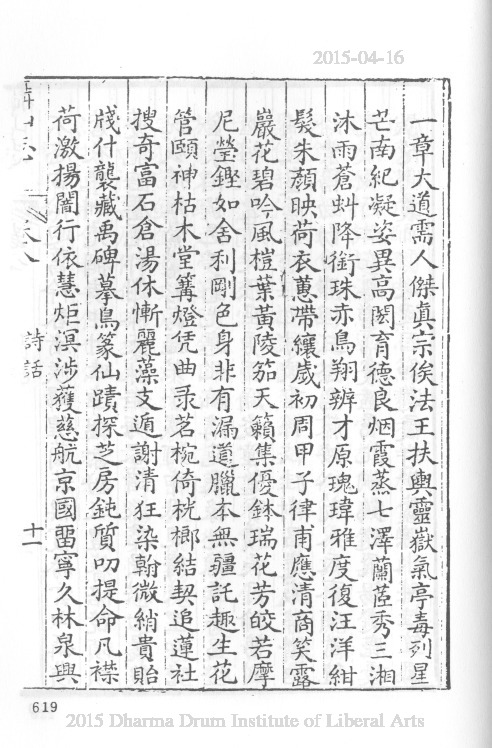 2015-04-16
一章大道需人傑眞宗俟法王扶輿靈嶽氣亭毒列星
芒南紀凝姿異高閎育德良烟霞蒸七澤蘭茝秀三湘
沐雨蒼虬降銜珠赤鳥翔辨才原瑰瑋雅度復汪洋紺
髮朱顏映荷衣蕙帶纕歲初周甲子律甫應清商笑露
巖花碧吟風榿葉黃陵笳天籟集優鉢瑞花芳皎若摩
尼瑩鏗如舍利剛色身非有漏道臘本無疆託趣生花
管頤神枯木堂篝燈凭曲彔茗椀倚桄榔結契追蓮社
搜奇富石倉湯休慚麗藻支遁謝清狂染翰微綃貴貽
牋什襲藏禹碑摹鳥篆仙蹟探芝房鈍質叨提命凡襟
荷激揚闇行依慧炬溟涉獲慈航京國畱寧久林泉興
詩話
十一
619
2015 Dharma Drum Institute of Liberal Arts